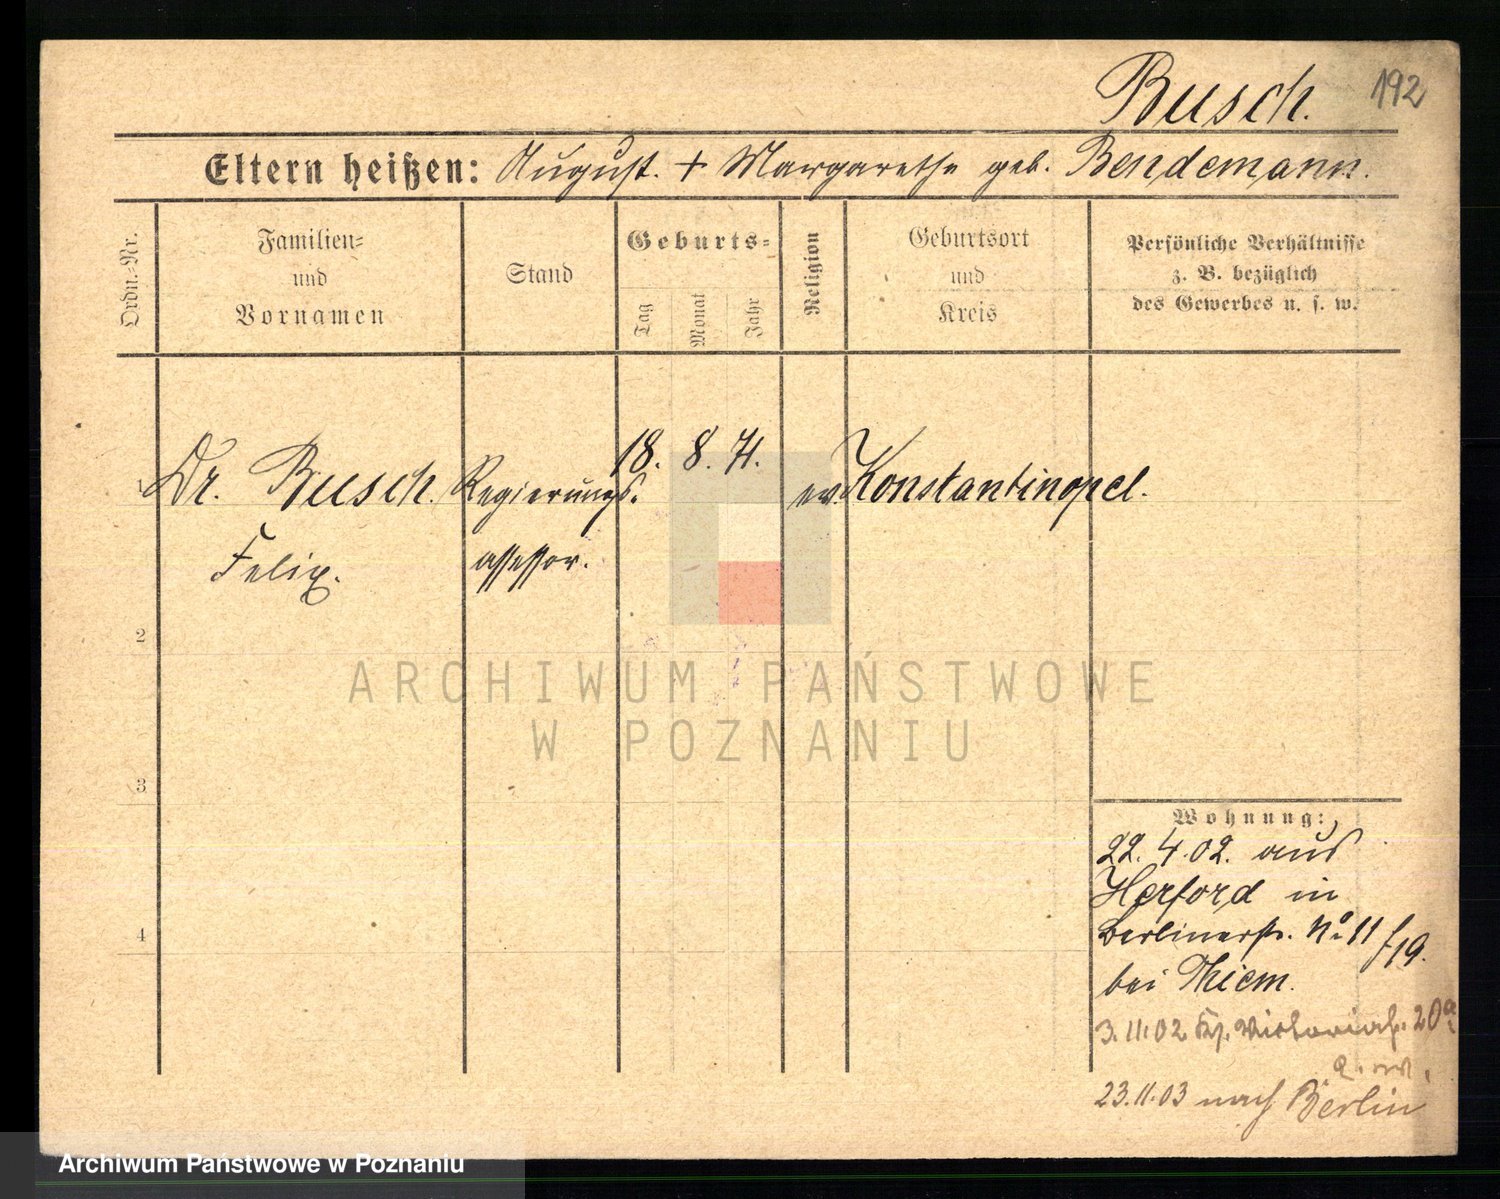 Busch.
192
Eltern heißen: August. + Margarethe geb. Bendemann.
Ordn.-Nr.
Familien-
und
Vornamen
Stand
Geburts-
Tag
Monat
Jahr
Religion
Geburtsort
und
Kreis
Persönliche Verhältnisse
z. B. bezüglich
des Gewerbes u. s. w.
1 Dr. Busch. Regierungs. 18. 8. 71. ev. Konstantinopel.
Felix. assessor.
2
3
4
ARCHIWUM PAŃSTWOWE
W POZNANIU
Wohnung:
22. 4. 02. aus
Herford in
Berlinerstr. No 11
f19.
bei Thiem.
3. 11. 02 Victoriastr. 20a
23. 11. 03 nach Berlin
Archiwum Państwowe w Poznaniu